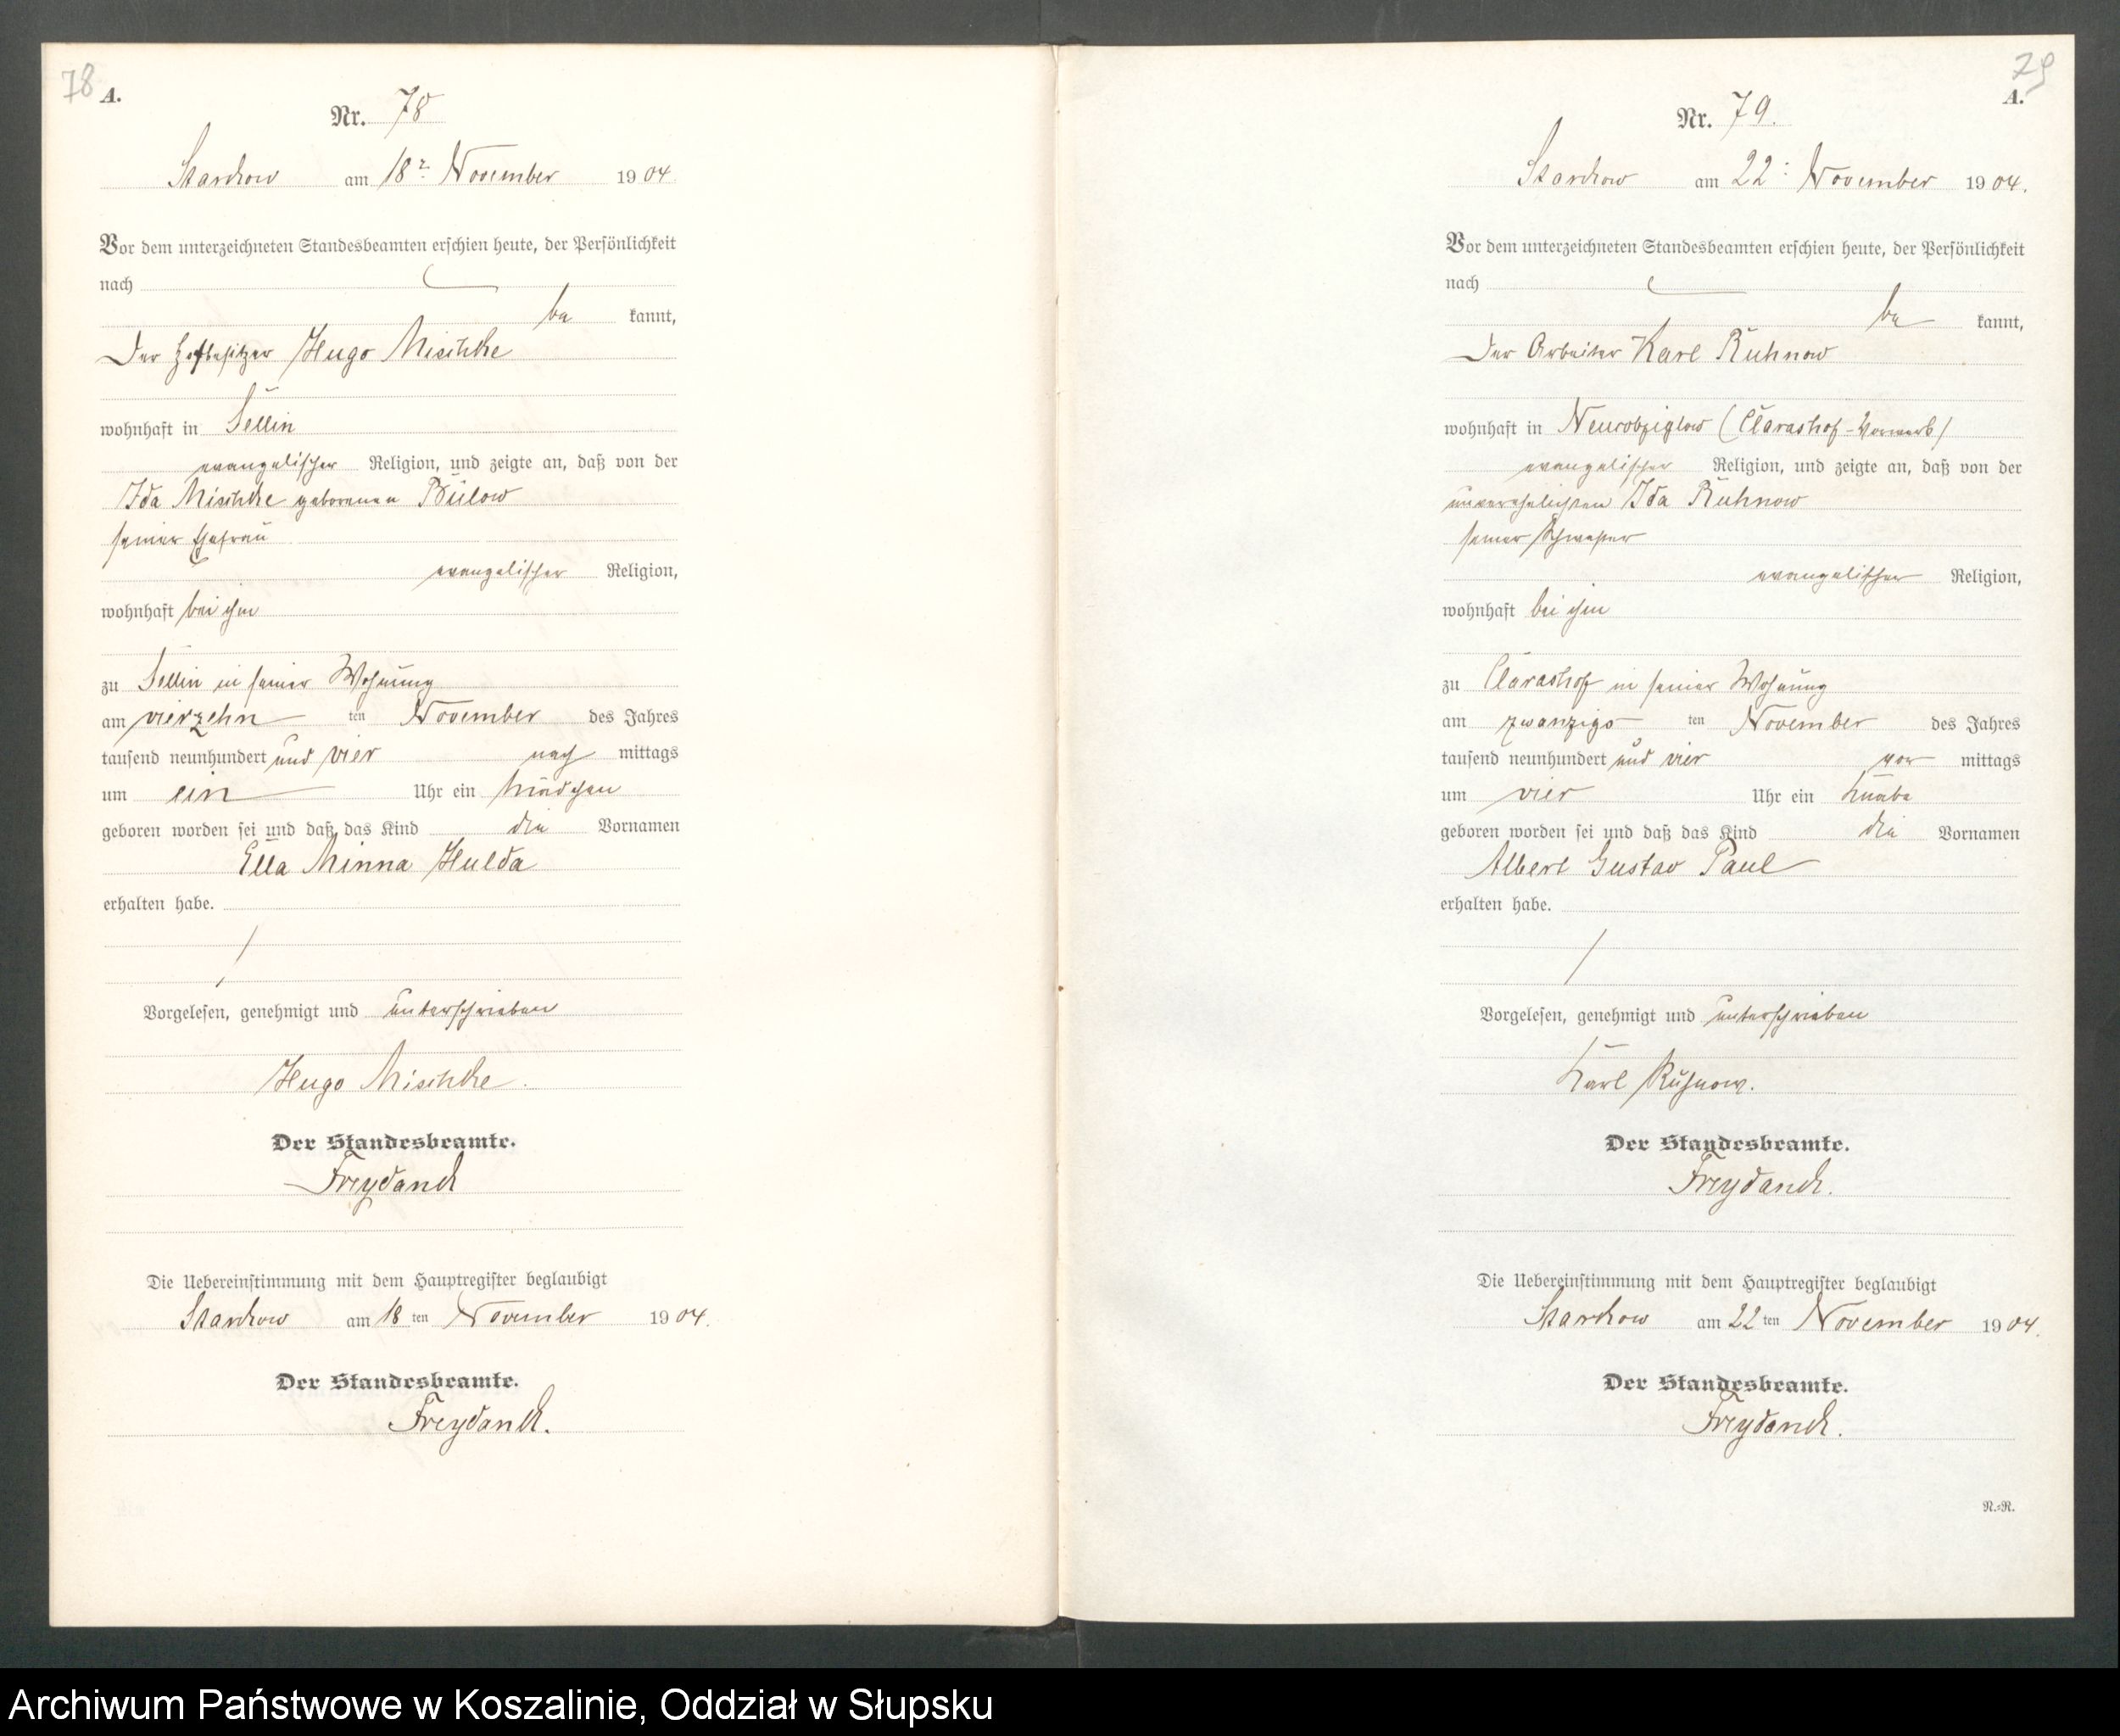 78
A.
Nr. 78
Starckow am 18t November 1904
Vor dem unterzeichneten Standesbeamten erschien heute, der Persönlichkeit
nach
be kannt,
Der Hofbesitzer Hugo Mischke
wohnhaft in Sellin
evangelischer Religion, und zeigte an, daß von der
Ida Mischke geborenen Bülow
seiner Ehefrau
evangelischer Religion,
wohnhaft bei ihm
zu Sellin in seiner Wohnung
am vierzehn ten November des Jahres
tausend neunhundert und vier nach mittags
um ein Uhr ein Mädchen
geboren worden sei und daß das Kind die Vornamen
Ella Minna Hulda
erhalten habe.
Vorgelesen, genehmigt und unterschrieben
Hugo Mischke.
Der Standesbeamte.
Freydanck
Die Uebereinstimmung mit dem Hauptregister beglaubigt
Starckow am 18 ten November 1904.
Der Standesbeamte.
Freydanck.
79
A.
Nr. 79.
Starckow am 22: November 1904.
Vor dem unterzeichneten Standesbeamten erschien heute, der Persönlichkeit
nach
be kannt,
Der Arbeiter Karl Ruhnow
wohnhaft in Neurobziglow (Clarashof-Vorwerk)
evangelischer Religion, und zeigte an, daß von der
unverehelichten Ida Ruhnow
seiner Schwester
evangelischer Religion,
wohnhaft bei ihm
zu Clarashof in seiner Wohnung
am zwanzigs ten November des Jahres
tausend neunhundert und vier vor mittags
um vier Uhr ein Knabe
geboren worden sei und daß das Kind die Vornamen
Albert Gustav Paul
erhalten habe.
Vorgelesen, genehmigt und unterschrieben
Karl Ruhnow.
Der Standesbeamte.
Freydanck.
Die Uebereinstimmung mit dem Hauptregister beglaubigt
Starckow am 22 ten November 1904.
Der Standesbeamte.
Freydanck.
N.=R.
Archiwum Państwowe w Koszalinie, Oddział w Słupsku